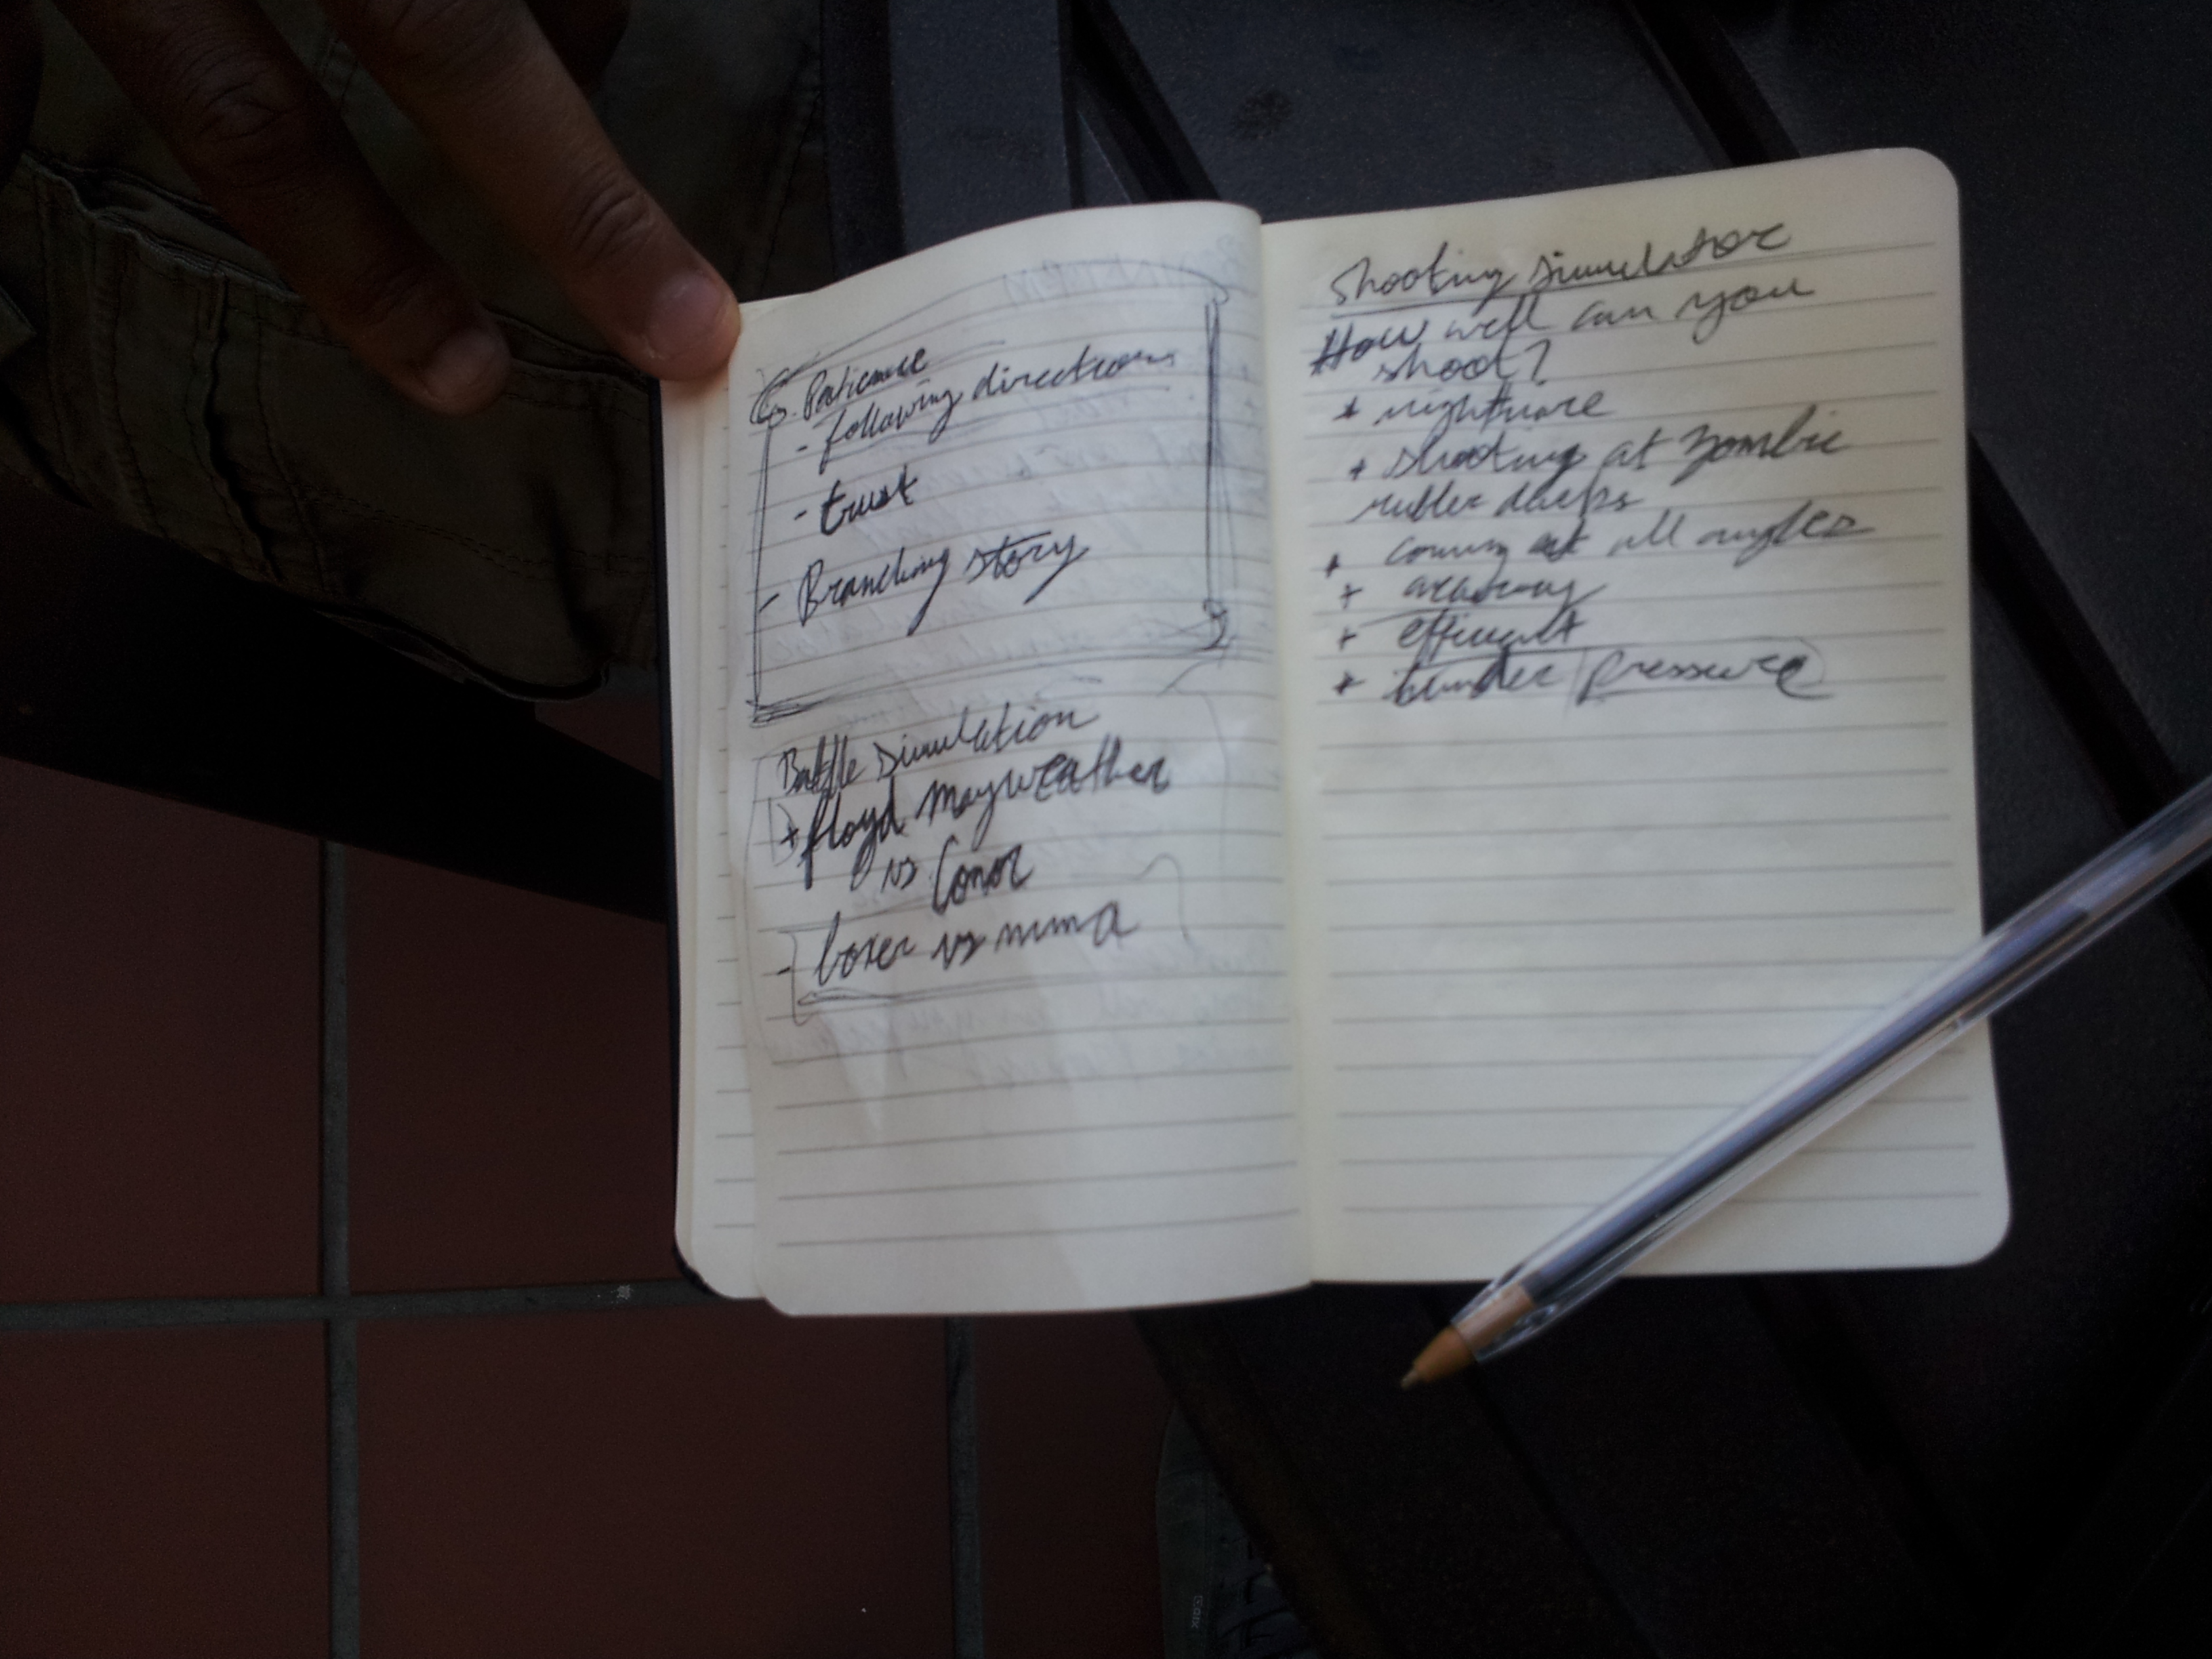 - Patience
- following directions
- trust
- Branching story
Battle simulation
+ floyd Mayweather
vs Conor
- boxer vs mma
Shooting simulator
How well can you
shoot?
* nightmare
* shooting at zombie
rubber ducks
* coming at all angles
+ accuracy
+ efficient
* under pressure